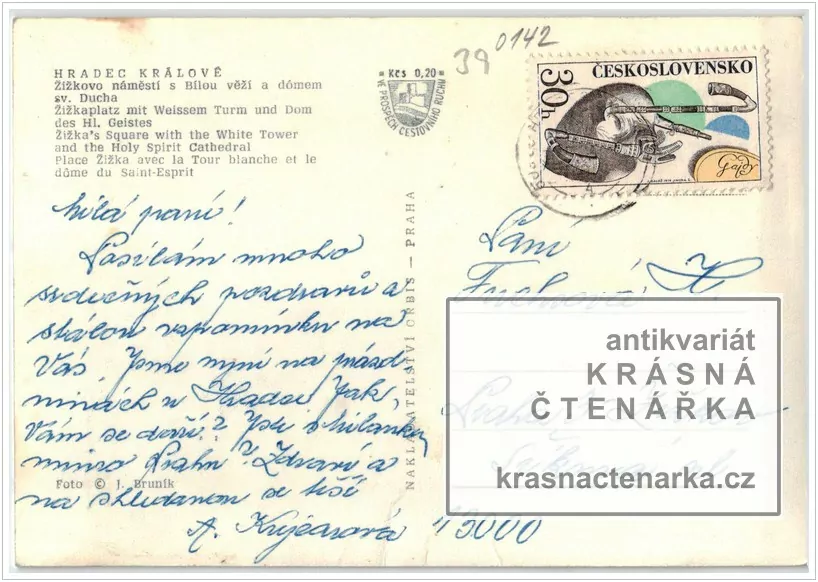 HRADEC KRÁLOVÉ
Žižkovo náměstí s Bílou věží a dómem
sv. Ducha
Žižkaplatz mit Weissem Turm und Dom
des Hl. Geistes
Žižka's Square with the White Tower
and the Holy Spirit Cathedral
Place Žižka avec la Tour blanche et le
dôme du Saint-Esprit
Kčs 0,20
VE PROSPĚCH CESTOVNÍHO RUCHU
39 0142
ČESKOSLOVENSKO
30h
Gajdy
Milá paní!
Posílám mnoho
srdečných pozdravů a
stálou vzpomínku na
Vás. Jsme nyní na prázd-
ninách u Hradce. Jak
Vám se daří? Jste s
mimo Prahu? Zdraví a
na shledanou se těší
A.
Foto © J. Bruník
NAKLADATELSTVÍ ORBIS — PRAHA
Paní
Fuchsová H.
Praha
15000
antikvariát
KRÁSNÁ
ČTENÁŘKA
krasnactenarka.cz